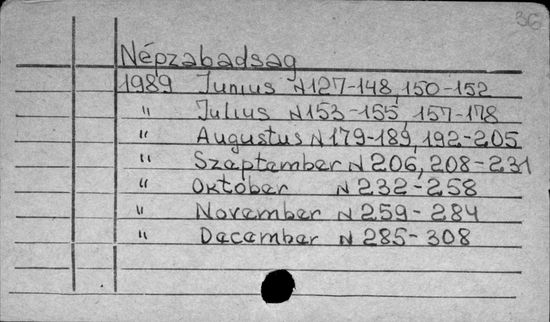 36
Népzabadsag
1989 Junius N127-148, 150-152
" Julius N153-155, 157-178
" Augustus N179-189, 192-205
" Szeptember N206, 208-231
" Oktober N232-258
" November N259-284
" December N285-308